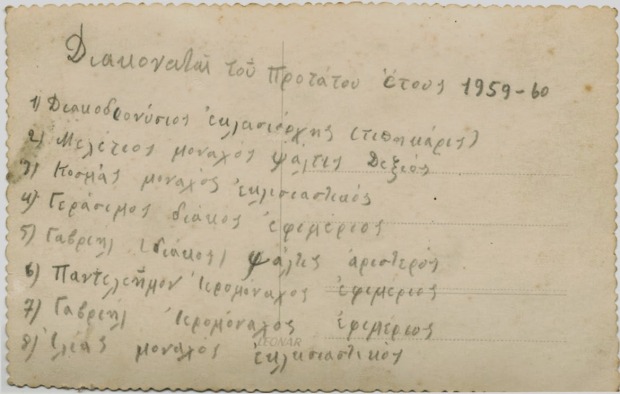 Διακοναταὶ τοῦ Προτάτου ἔτους 1959-60
1) Διακοδιονύσιος ἐκλασιάρχης (τιπηκάρις)
2) Μελέτιος μοναχός ψάλτις Δεξιός
3) Κοσμάς μοναχός ἐκλισιαστικός
4) Γεράσιμος διάκος ἐφιμέριος
5) Γαβριήλ (διάκος) ψάλτις ἀριστερός
6) Παντελεῆμον Ἱερομοναχος ἐφιμεριος
7) Γαβριήλ Ἱερομόναχος ἐφιμέριος
8) Ἰλίας μοναχός ἐκλισιαστικός
LEONAR